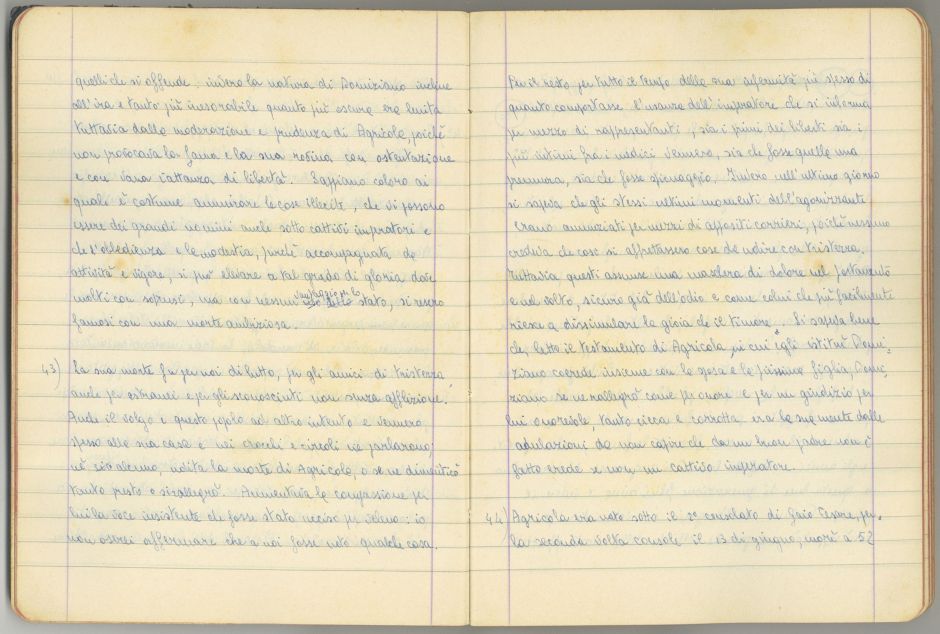 quelli che si offende, invero la natura di Domiziano incline
all'ira e tanto più inesorabile quanto più oscura era lenita
tuttavia dalla moderazione e prudenza di Agricola, poiché
non provocava la fama e la sua rovina con ostentazione
e con vana iattanza di libertà. Sappiano coloro ai
quali è costume ammirare le cose illecite, che vi possono
essere dei grandi uomini anche sotto cattivi imperatori e
che l'obbedienza e la modestia, purché accompagnata da
attività e vigore, si può elevare a tal grado di gloria dove
vantaggio per lo
molti con soprusi, ma con nessun uso dello stato, si resero
famosi con una morte ambiziosa.
43) La sua morte fu per noi di lutto, per gli amici di tristezza,
anche per estranei e per gli sconosciuti non senza afflizione.
Anche il volgo e questo popolo ad altro intento e vennero
spesso alla sua casa e nei crocchi e circoli ne parlarono;
né vi alcuno, udita la morte di Agricola, o se ne dimenticò
tanto presto o si rallegrò. Aumentava la compassione per
lui la voce insistente che fosse stato ucciso per veleno: io
non oserei affermare che a noi fosse noto qualche cosa.
Per il resto, per tutto il tempo della sua infermità più spesso di
quanto comportasse l'usanza dell'imperatore che si informa
per mezzo di rappresentanti, sia i primi dei liberti sia i
più intimi fra i medici vennero, sia che fosse quella una
premura, sia che fosse spionaggio. Invero nell'ultimo giorno
si sapeva che gli stessi ultimi momenti dell'agonizzante
erano annunziati per mezzo di appositi corrieri, poiché nessuno
credeva che così si affrettassero cose da udire con tristezza.
Tuttavia questi assunse una maschera di dolore nel portamento
e nel volto, sicuro già dell'odio e come colui che più facilmente
riesce a dissimulare la gioia che il timore. Si sapeva bene
che, letto il testamento di Agricola, in cui egli istituì Domi-
ziano coerede insieme con la sposa e la piissima figlia, Domi-
ziano se ne rallegrò come per onore e per un giudizio per
lui onorevole, tanto cieca e corrotta era la sua mente dalle
adulazioni da non capire che da un buon padre non è
fatto erede se non un cattivo imperatore.
44) Agricola era nato sotto il 3° consolato di Gaio Cesare, per
la seconda volta console il 13 di giugno, morì a 52